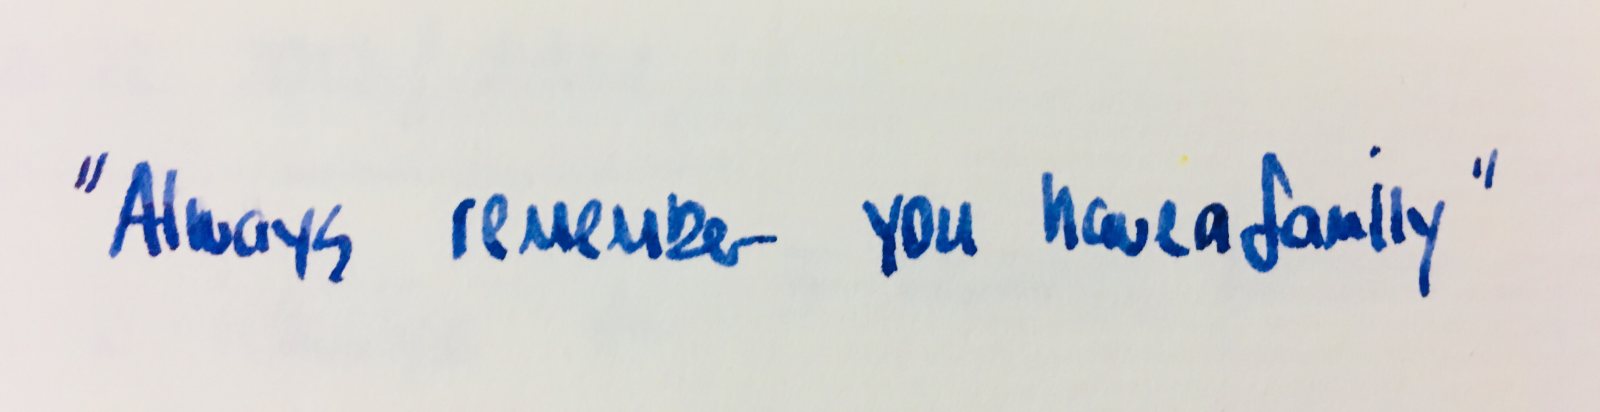 "Always remember you have a family"